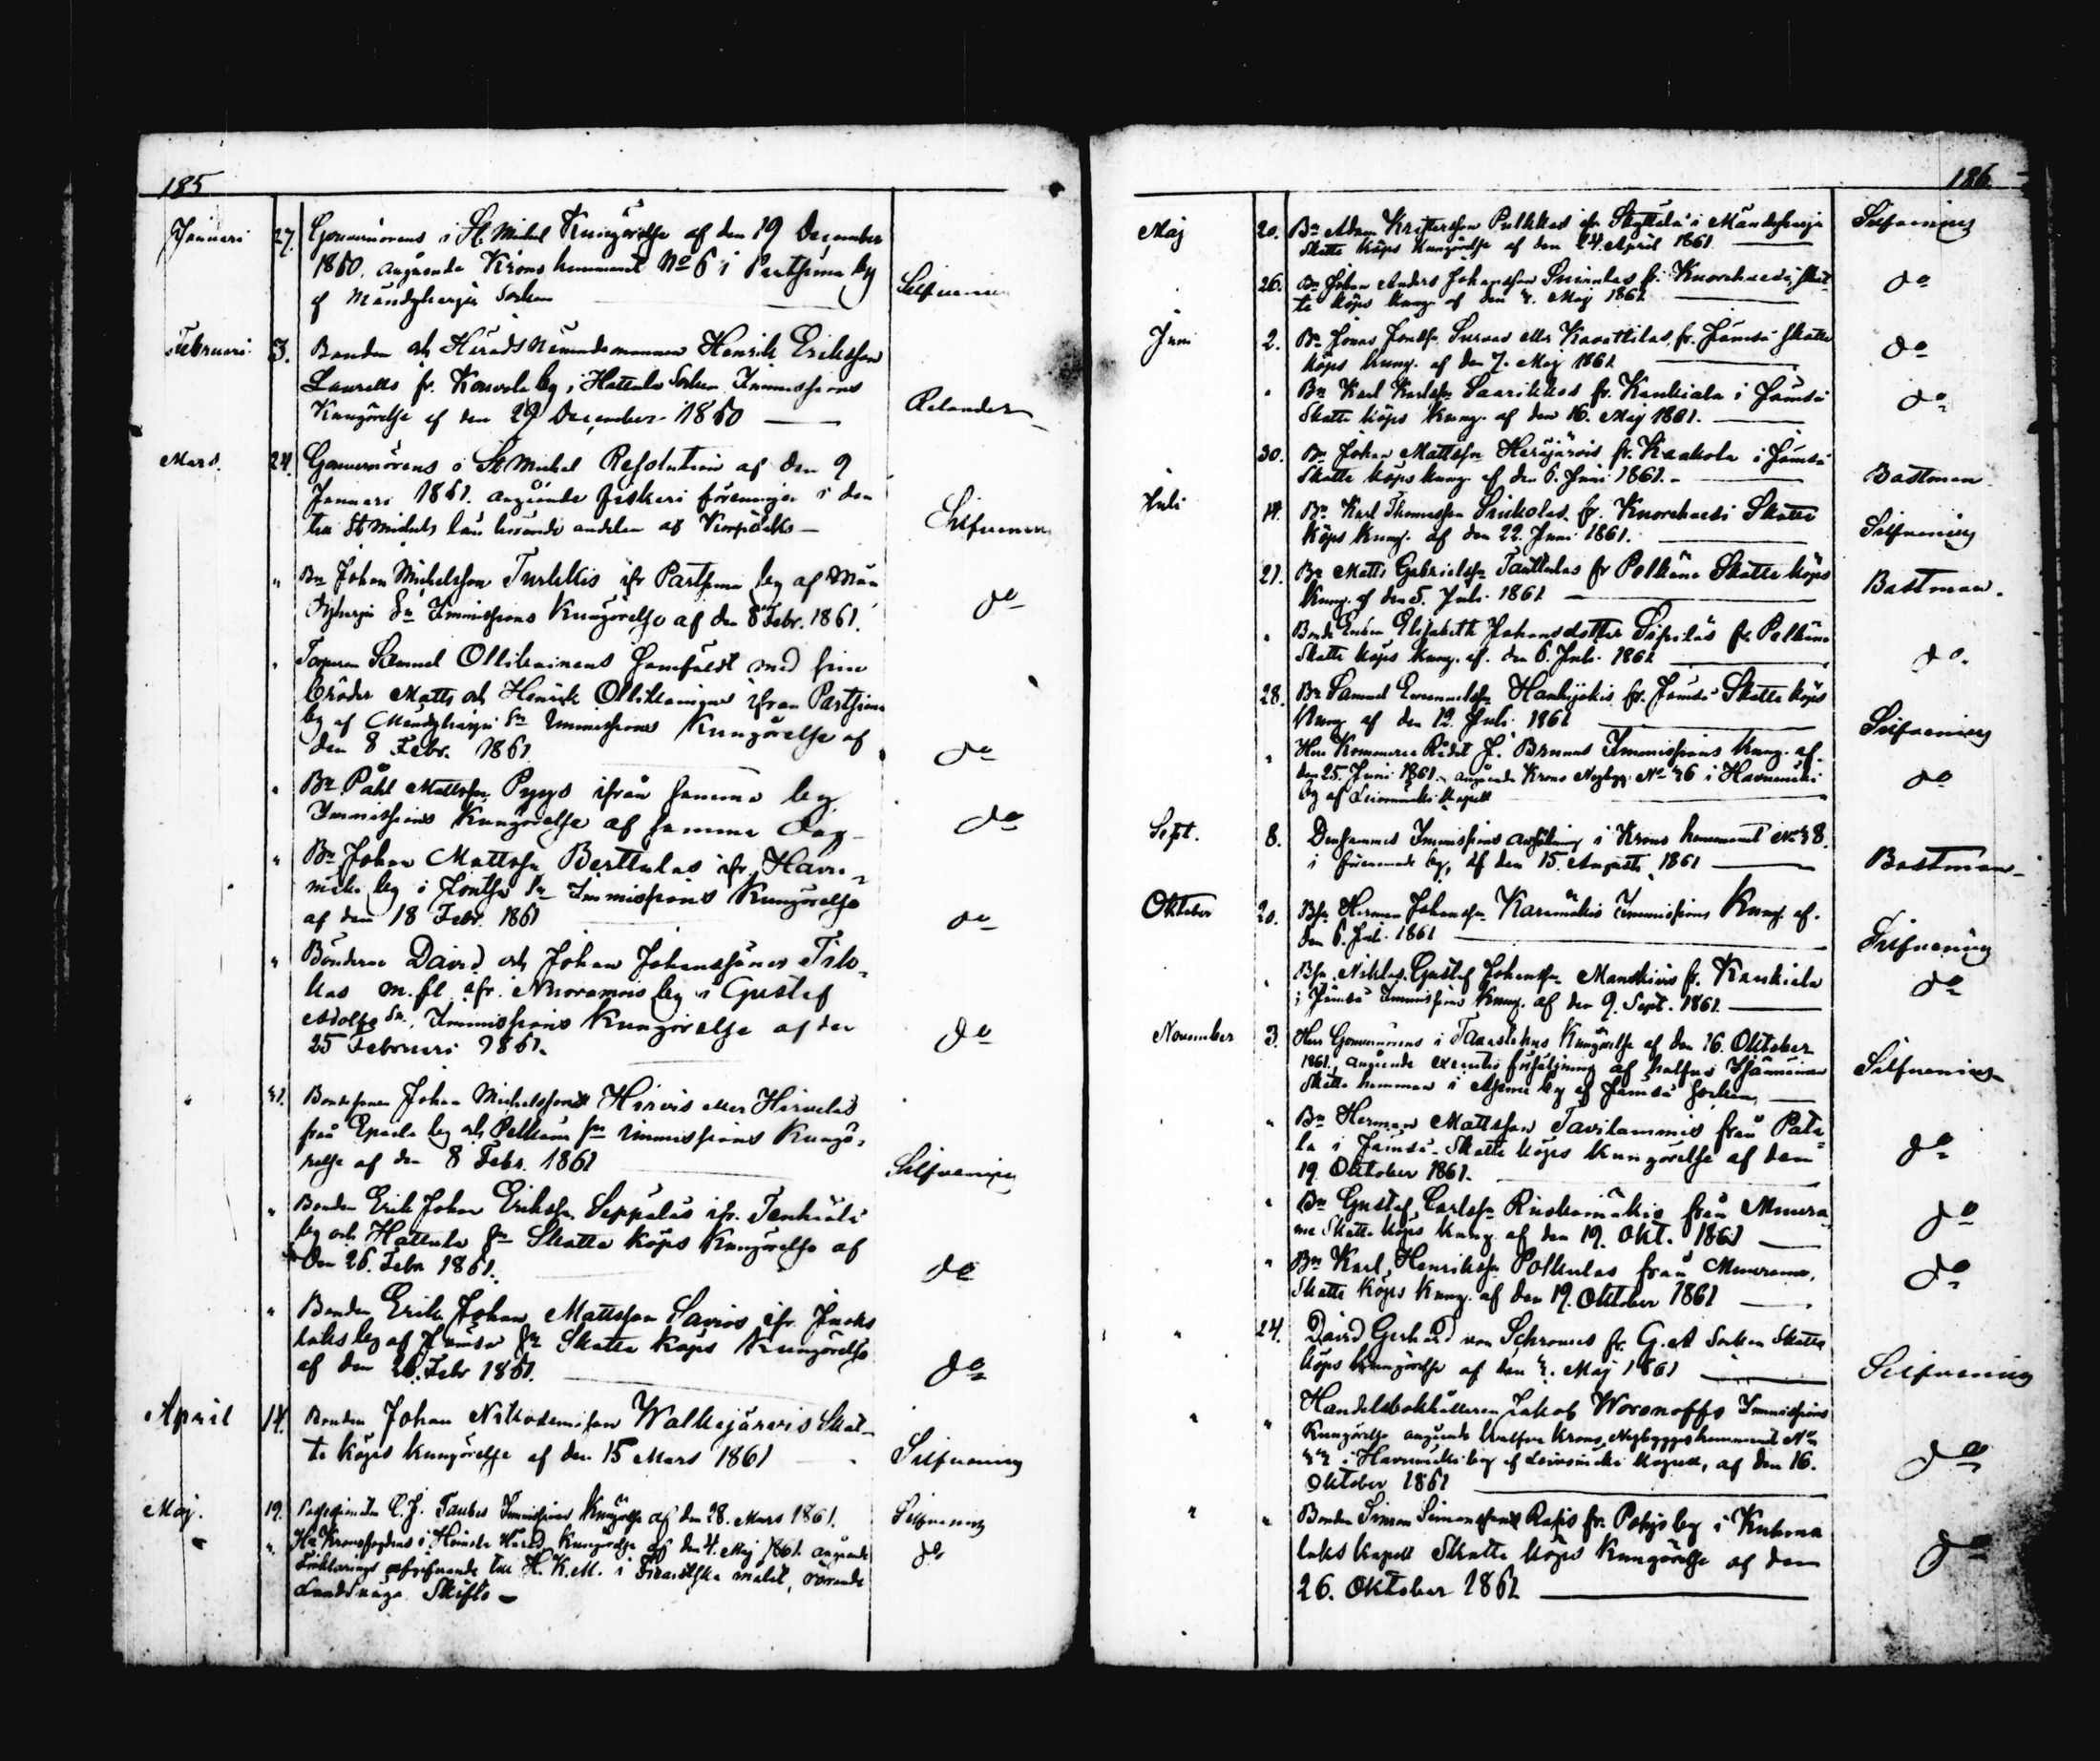 185
Januari 27. Gouvernörens i St. Michel Kungörelse af den 19 December
1860, angående Krono hemmanet No 6 i Partsima by
af Mändyharju Socken Silfvening
Februari 3. Bonden och Härads Nämndemannen Henrik Eriksson
Laurells fr. Konvola by i Hattula Socken Immissions
Kungörelse af den 29 December 1860 Relander
Mars. 24. Gouvernörens i St Michel Resolution af den 9
Januari 1861. angående fiskeri föreningen i den
till St Michels län hörande andelen af
Silfvening
" Bn Johan Michelsson Turkkis ifr Partsima by af Män
dyharju Sn Immissions Kungörelse af den 8 Febr. 1861. do
" Torparen Samuel Ollikainens jemfäldt med sine
bröder Matts och Henrik Ollikainen ifrån Partsima
by af Mändyharju Sn Immissions Kungörelse af
den 8 Febr. 1861 do
" Bn Påhl Mattsson Pyys ifrån samma by
Immissions Kungörelse af samma dag do
" Bn Johan Mattsson Berttulas ifr. Havu-
mäki by i Joutsa Sn Immissions Kungörelse
af den 18 Febr. 1861 do
" Bönderne David och Johan Johanssöner
m. fl. ifr. by i Gustaf
Adolfs Sn. Immissions Kungörelse af den
25 Februari 1861. do
" 31. Bondesonen Johan Michelsson Hirvis eller Hirvelas
från Epaala by och Pelkäne Sn Immissions Kungö-
relse af den 8 Febr. 1861 Silfvening
" Bonden Erik Johan Eriksson Seppäläs ifr. Tenhiälä
by och Hattula Sn Skatte köps Kungörelse af
den 26. Febr 1861. do
" Bonden Erik Johan Mattsson Savios ifr.
by af Jämsä Sn Skatte köps Kungörelse
af den 26. Febr 1861. do
April 14. Bonden Johan Nikodemisson Walkejärvis Skat-
te köps kungörelse af den 15 Mars 1861 Silfvening
Maj. 19. Possessionaten C. J. Taubes Immissions Kungörelse af den 28. Mars 1861. Silfvening
" Hr Kronofogdens i Heinola Härad Kungörelse af den 4. Maj 1861. angående
Förklarings afgifvande till H. K. M. i målet, rörande
Skifte do
186
Maj 20. Bn Adam Kristersson Pulkkas ifr Skyttälä i Mändyharju
Skatte köps kungörelse af den 24. April 1861. Silfvening
26. Bn Johan Anders Johansson fr. Knorchaedi, Skat-
te köps kung. af den 7. Maj 1861 do
Juni 2. Bn Jonas Jonasson Survas eller Kavattilas, fr. Jämsä Skatte
köps kung. af den 7. Maj 1861 do
" Bn Karl Karlsson Saarikkos fr. Kaukiala i Jämsä
Skatte köps kung. af den 16. Maj 1861. do
30. Bn Johan Mattsson Herajärvis fr. Kaakola i Jämsä
Skatte köps kung. af den 6. Juni 1861. Bastman
Juli 14. Bn Karl Thomasson fr. Knorchaedi Skatte
köps kung. af den 22. Juni 1861. Silfvening
21. Bn Matts Gabrielsson fr Pelkäne Skatte köps
kung. af den 5. Juli 1861 Bastman.
" Bonde Enkan Elisabeth Johansdotter Sipiläs fr. Pelkäne
Skatte köps kung. af. den 6. Juli. 1861 do.
28. Bn Samuel Emanuelsson Hankijokis fr. Jämsä Skatte köps
kung af den 12. Juli 1861 Silfvening
" Herr Kommerce Rådet J. Brunns Immissions kung. af.
den 25. Juni 1861. angående Krono Nybygg. No 46 i Havumäki
by af Leivonmäki kapell do
Sept. 8. Densammes Immissions ansökning i Krono hemmanet No 48.
i by, af den 15. Augusti 1861 Bastman
Oktober 20. Bsn Herman Johansson Karimäkis Immissions Kung. af.
den 6. Juli 1861 Silfvening
" Bsn. Niklas Gustaf Johansson Manskivis fr. Kaukiala
i Jämsä Immissions Kung. af den 9. Sept. 1861. do
November 3. Herr Gouvernörens i Tavastehus Kungörelse af den 16. Oktober
1861, angående executiv försäljning af halfva
Skatte hemman i by af Jämsä Socken Silfvening
" Bn Herman Mattsson Tavilammis från Pata-
la i Jämsä Skatte köps kungörelse af den
19. Oktober 1861. do
" Bn Gustaf Carlsson Ruskomäkis från Muura
me Skatte köps kung. af den 19. Okt. 1861 do
" Bn Karl Henriksson Polkulas från Muurame,
Skatte köps kung. af den 19. Oktober 1861 do
" 24. David Gerhard von Schrowes fr. G. A Socken Skatte
köps kungörelse af den 7. Maj 1861 Silfvening
" " Handelsbokhållaren Jakob Woronoffs Immissions
Kungörelse angående halfva Krono Nybyggeshemmanet No
i Havumäki by af Leivonmäki kapell, af den 16.
Oktober 1861 do
" " Bonden Simon Simonsson Rapis fr. Pohjois by i Kuhma
laks kapell Skatte köps kungörelse af den
26. Oktober 1861 do